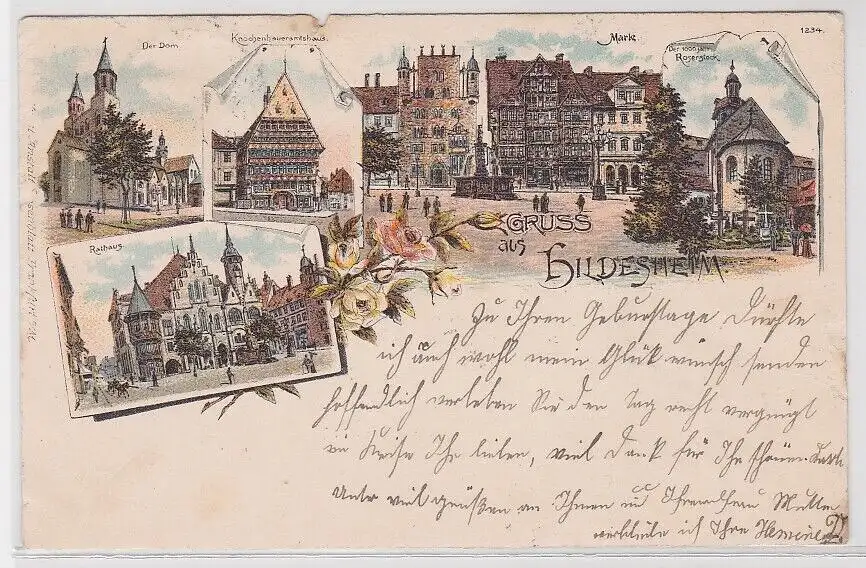 Der Dom
Knochenhaueramtshaus.
Markt.
Der 1000 jähr.
Rosenstock.
1234.
Rathaus
GRUSS
aus
HILDESHEIM.
Zu Ihren Geburstage Dürfte
ich auch wohl mein Glük wunsch senden
hoffendlich verleben Sie den Tag recht vergnügt
im Kreise Ihr lieben, viel Dank für Ihr schönen Karte
Unter viel grüßen an Ihnen und Ihrem Frau Mutter
verbleibe ich Ihre